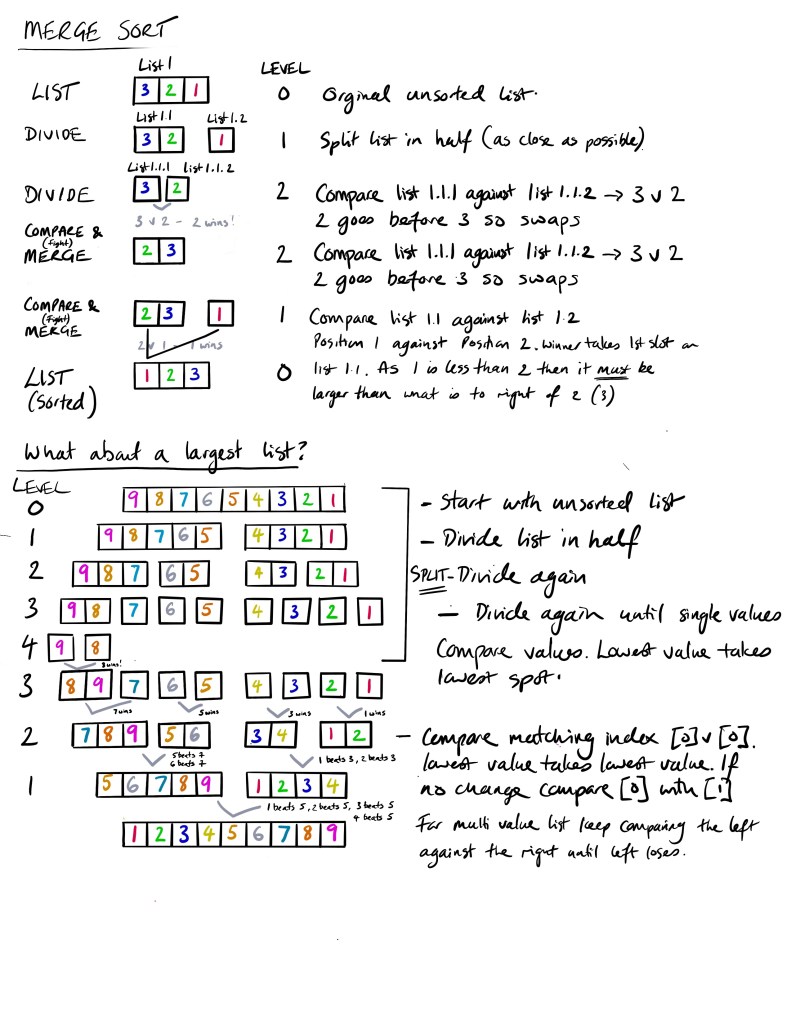 MERGE SORT
List 1
LEVEL
LIST
3 2 1
0 Orginal unsorted list.
List 1.1 List 1.2
DIVIDE
3 2 1
1 Split list in half (as close as possible)
List 1.1.1 list 1.1.2
DIVIDE
3 2
2 Compare list 1.1.1 against list 1.1.2 → 3 v 2
2 goes before 3 so swaps
3 v 2 - 2 wins!
COMPARE &
(Fight)
MERGE
2 3
2 Compare list 1.1.1 against list 1.1.2 → 3 v 2
2 goes before 3 so swaps
COMPARE &
(Fight)
MERGE
2 3 1
1 Compare list 1.1 against list 1.2
Position 1 against Position 2. Winner takes 1st slot on
2 v 1 - 1 wins
LIST
(Sorted)
1 2 3
0 list 1.1. As 1 is less than 2 then it must be
larger than what is to right of 2 (3)
What about a largest list?
LEVEL
0 9 8 7 6 5 4 3 2 1
- Start with unsorted list
1 9 8 7 6 5 4 3 2 1
- Divide list in half
2 9 8 7 6 5 4 3 2 1
SPLIT - Divide again
3 9 8 7 6 5 4 3 2 1
- Divide again until single values
4 9 8
Compare values. Lowest value takes
lowest spot.
8 wins!
3 8 9 7 6 5 4 3 2 1
7 wins 5 wins 3 wins 1 wins
2 7 8 9 5 6 3 4 1 2
- Compare matching index [0] v [0].
lowest value takes lowest value. If
no change compare [0] with [1]
5 beats 7
6 beats 7
1 beats 3, 2 beats 3
1 5 6 7 8 9 1 2 3 4
1 beats 5, 2 beats 5, 3 beats 5
4 beats 5
1 2 3 4 5 6 7 8 9
For multi value list keep comparing the left
against the right until left loses.